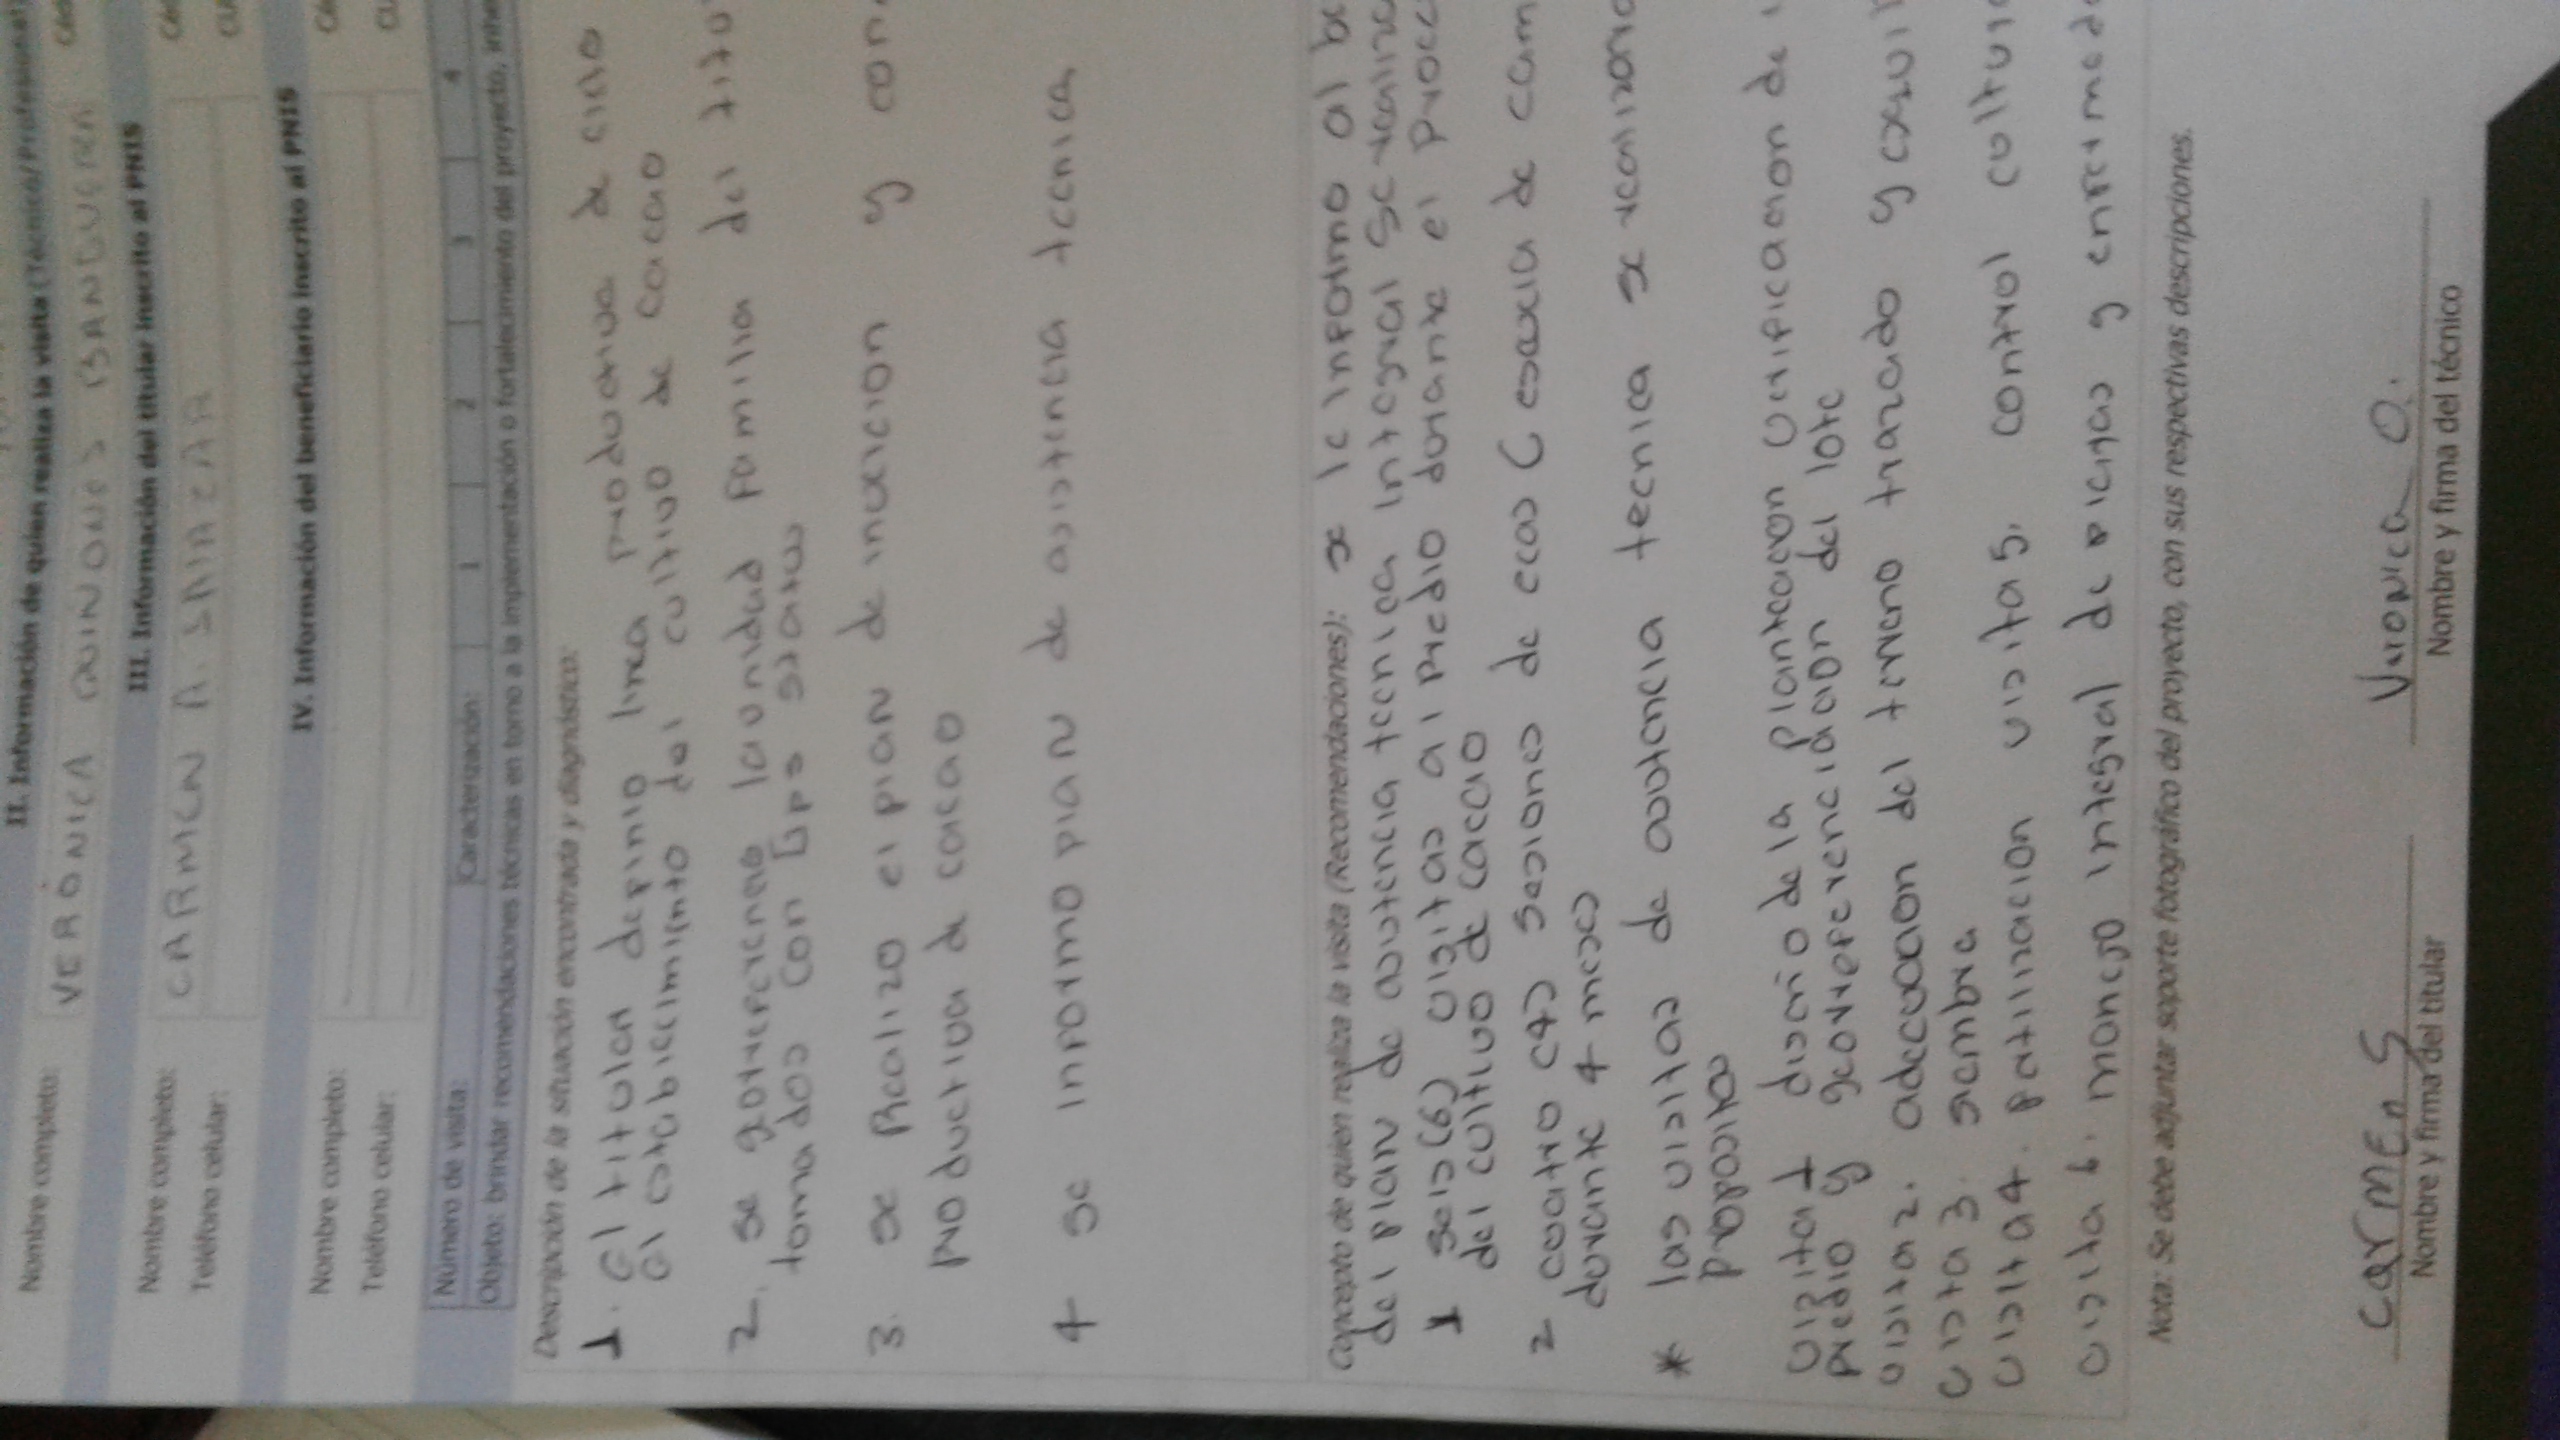 II. Información de quien realiza la visita (Técnico/Profesional)
Nombre completo: VERÓNICA QUIÑONES
III. Información del titular inscrito al PNIS
Nombre completo: CARMEN A. SALAZAR
Teléfono celular:
IV. Información del beneficiario inscrito al PNIS
Nombre completo:
Teléfono celular:
Número de visita: Caracterización: 1 2 3 4
Objeto: brindar recomendaciones técnicas en torno a la implementación o fortalecimiento del proyecto,
Descripción de la situación encontrada y diagnóstico:
1. el titular definio linea productiva de
el establecimiento del cultivo de cacao
2. se georeferencio la unidad familia del
tomados con Gps
3. se Realizo el plan de inversion y con
productiva de cacao
4 se informo plan de asistencia tecnica
Concepto de quien realiza la visita (Recomendaciones): se le informo al
del plan de asistencia tecnica integral se realiza
1 seis (6) visitas al predio durante el
del cultivo de cacao
2 cuatro (4) sesiones de ecas (escuela de cam
durante 4 meses
* las visitas de asistencia tecnica se realizara
propositos
visita 1 diseño de la plantacion verificacion de
predio y georeferenciacion del lote
visita 2. adecuacion del terreno trazado y
visita 3. siembra
visita 4. fertilizacion visita 5. control
visita 6. manejo integral de plagas y
Nota: Se debe adjuntar soporte fotográfico del proyecto, con sus respectivas descripciones.
carmEn S
Nombre y firma del titular
Veronica Q.
Nombre y firma del técnico